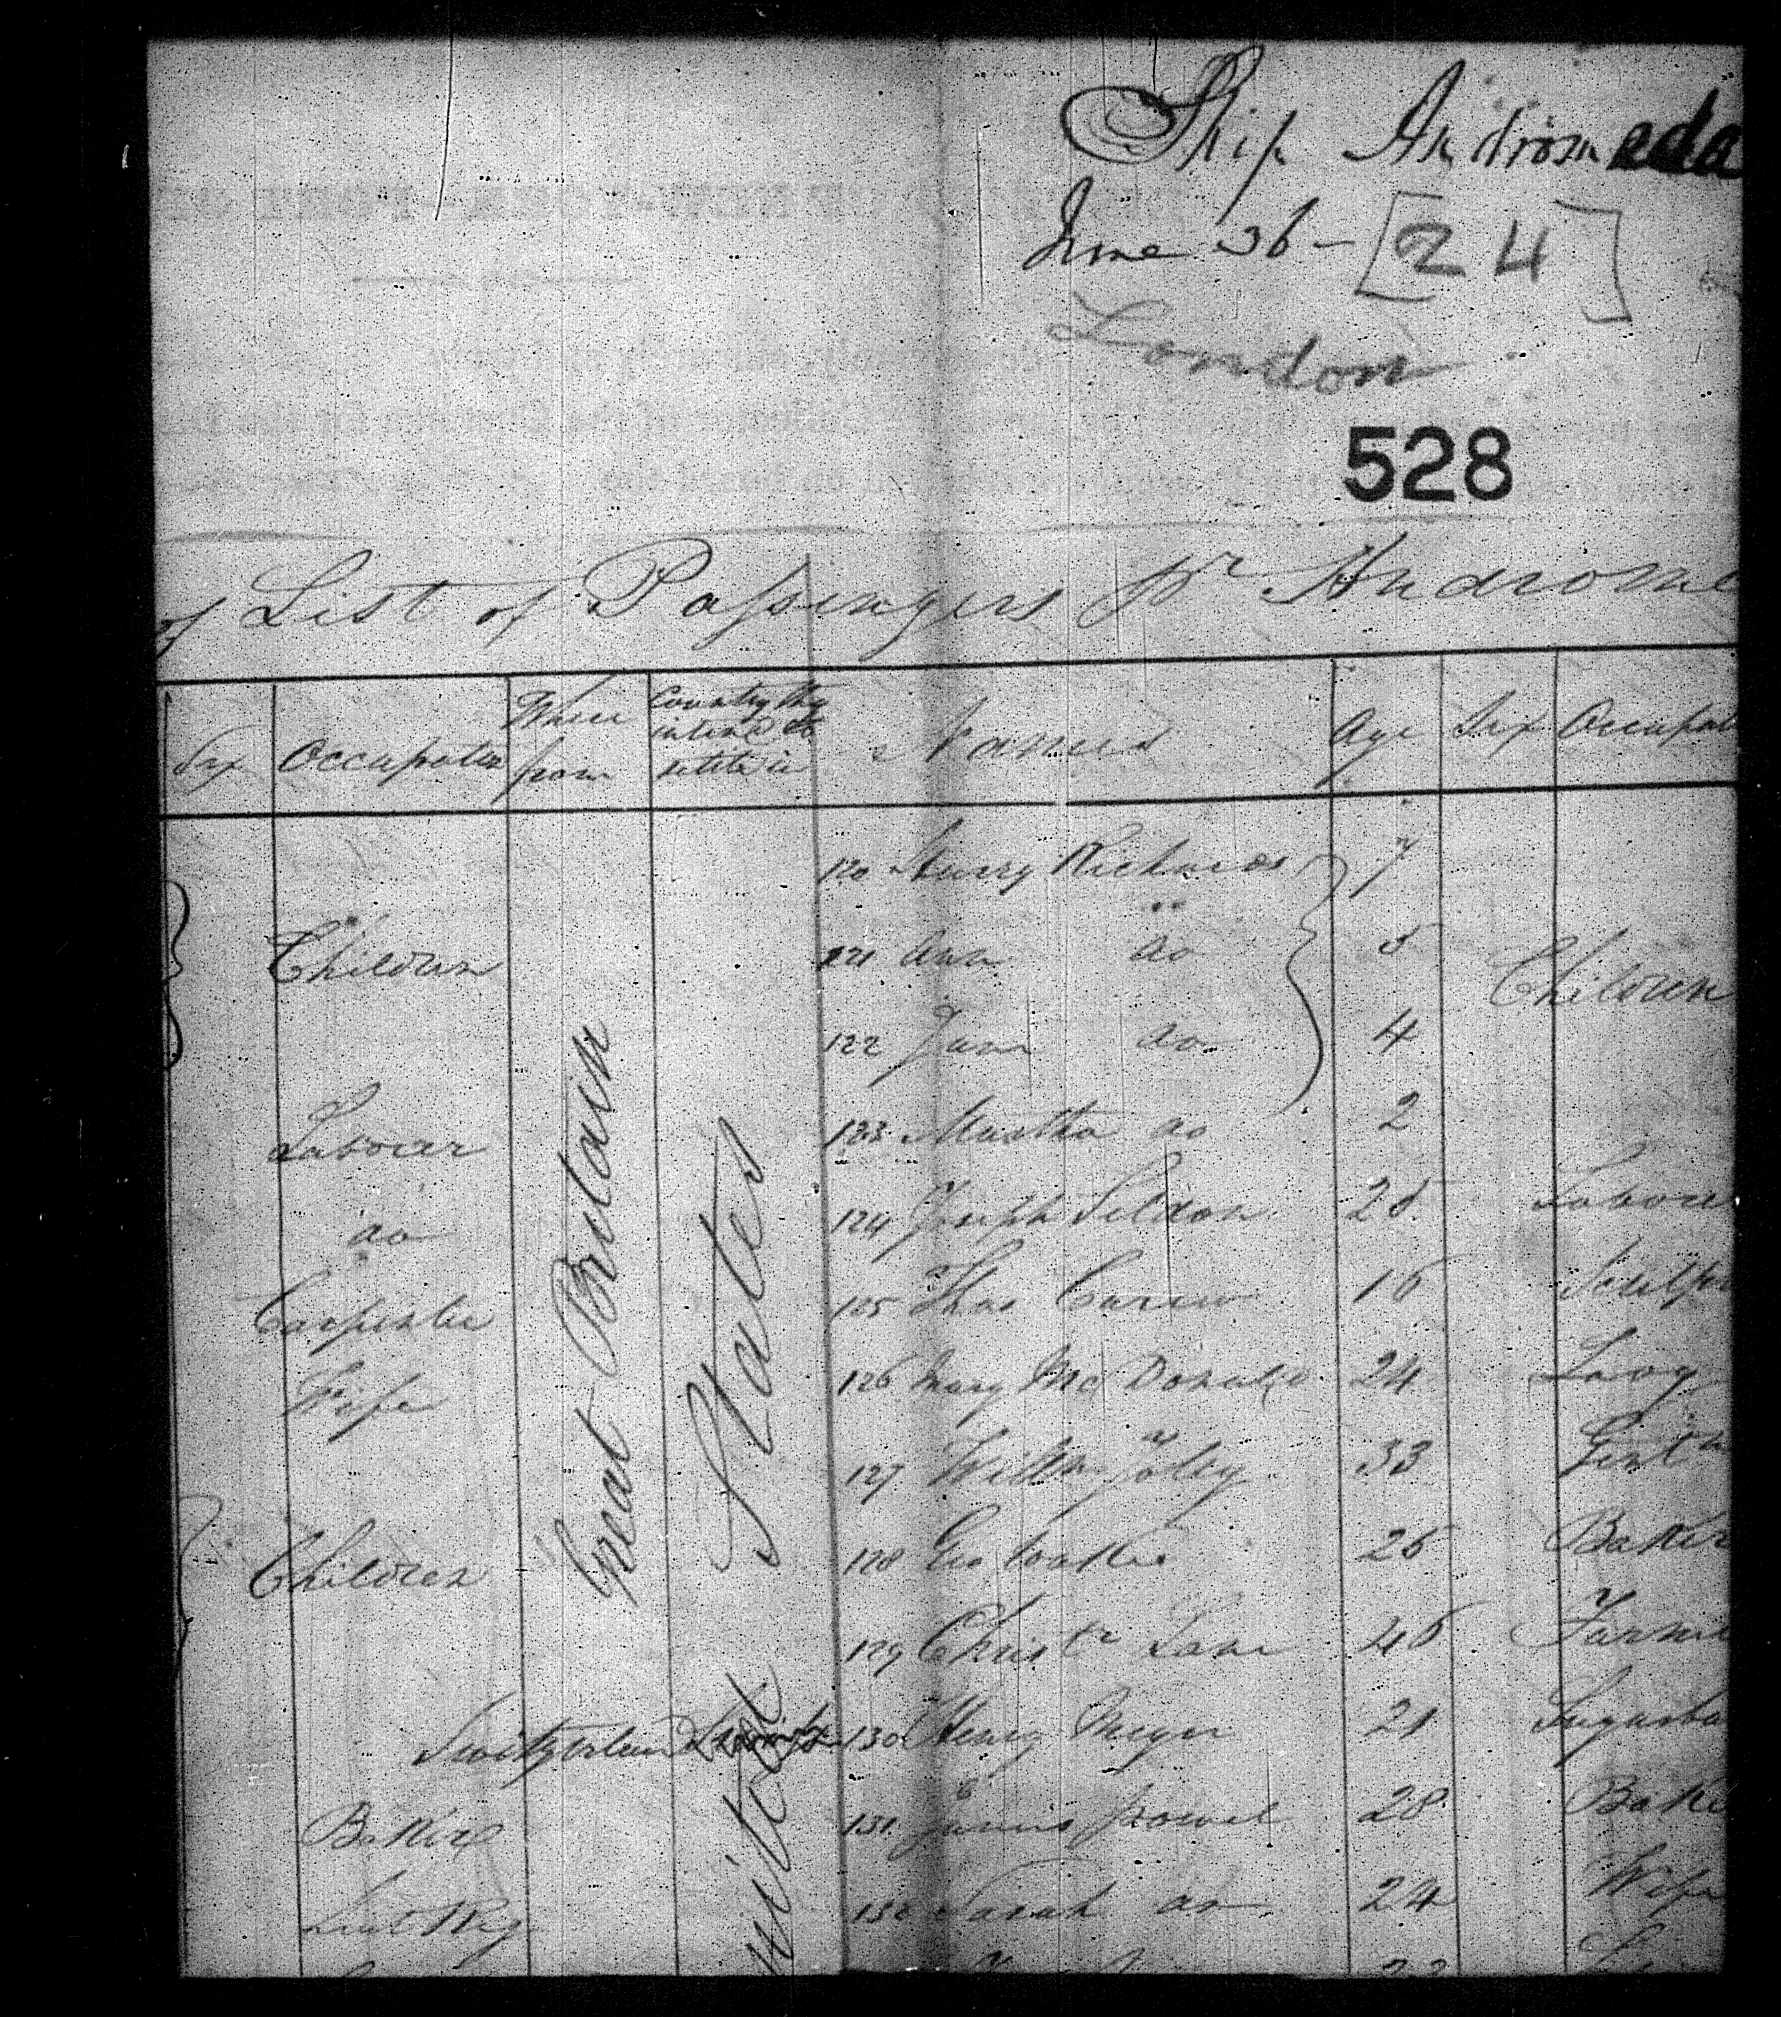 Ship Andromeda
June 26 - [24]
London
528
of List of Passengers pr Androme
Sex Occupation Where from Country they intend to settle in Names Age Sex Occupat
120 Henry Richards 7
Children 121 Ann do 5 Children
122 Jane do 4
Labourer 123 Martha do 2
do 124 Joseph Seldon 25 Laboure
Carpenter 125 Thos Carew 16 Sculp
Wife 126 Mary McDonald 24 Lady
127 Willm 33 Gentn
Children 128 Geo 25 Baker
129 Christr Lane 46 Farme
Switzerlan 130 Henry Meyer 21 Sugarba
Baker 131 James Powel 28 Bake
132 Sarah do 24 Wife
Great Britain
United States